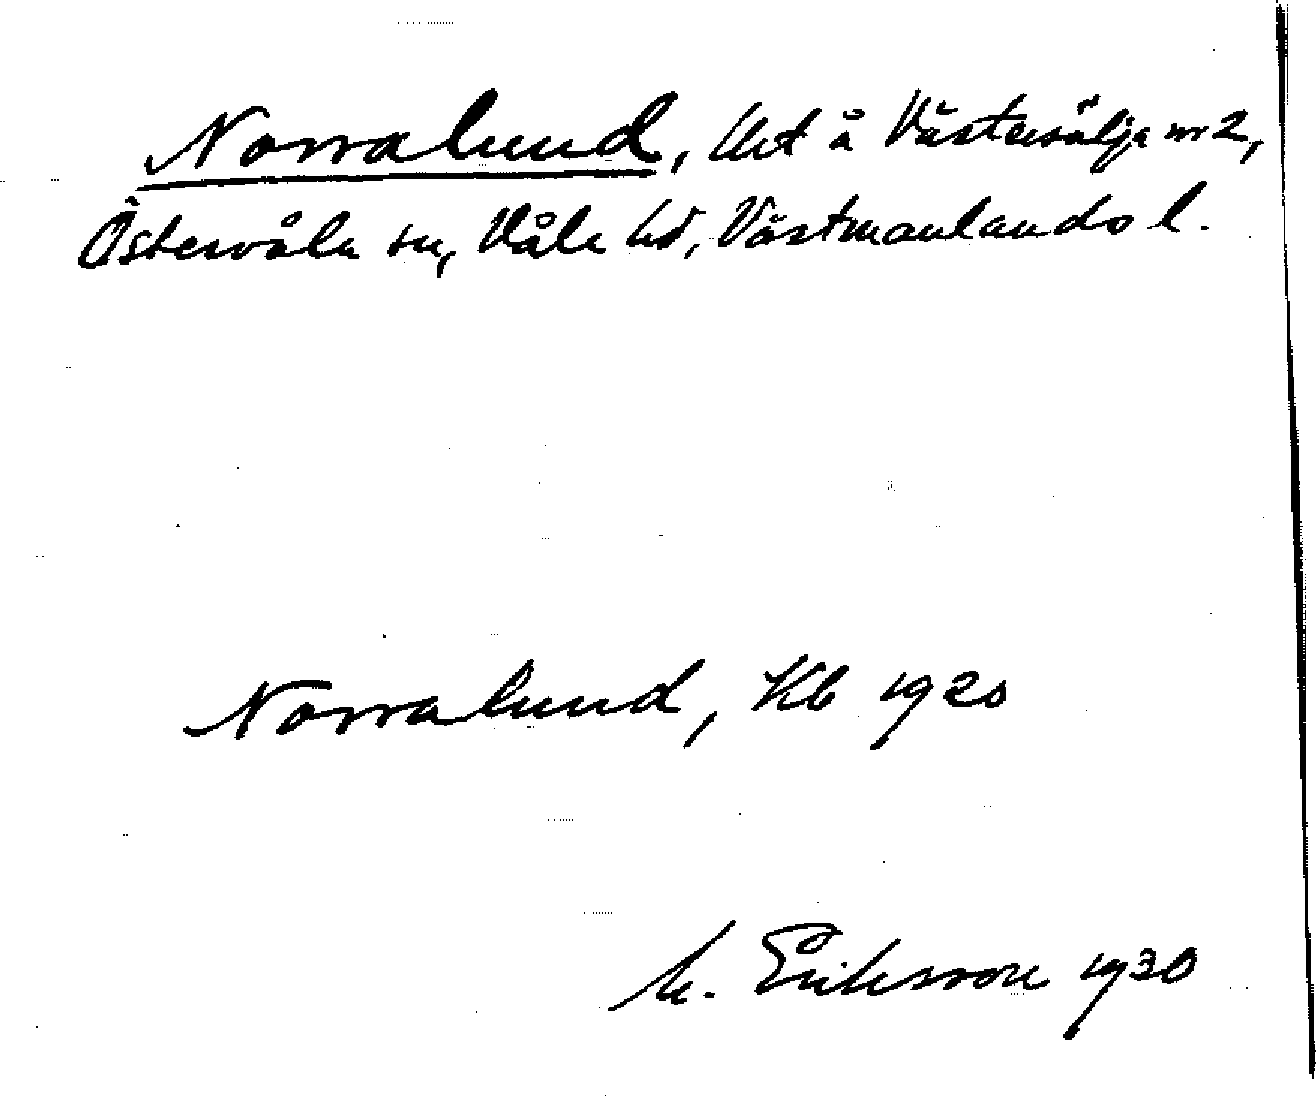 Norralund, lht å Västersälja nr 2,
Östervåla sn, Våla hd, Västmanlands l.
Norralund, Kb 1920
M. Eriksson 1930